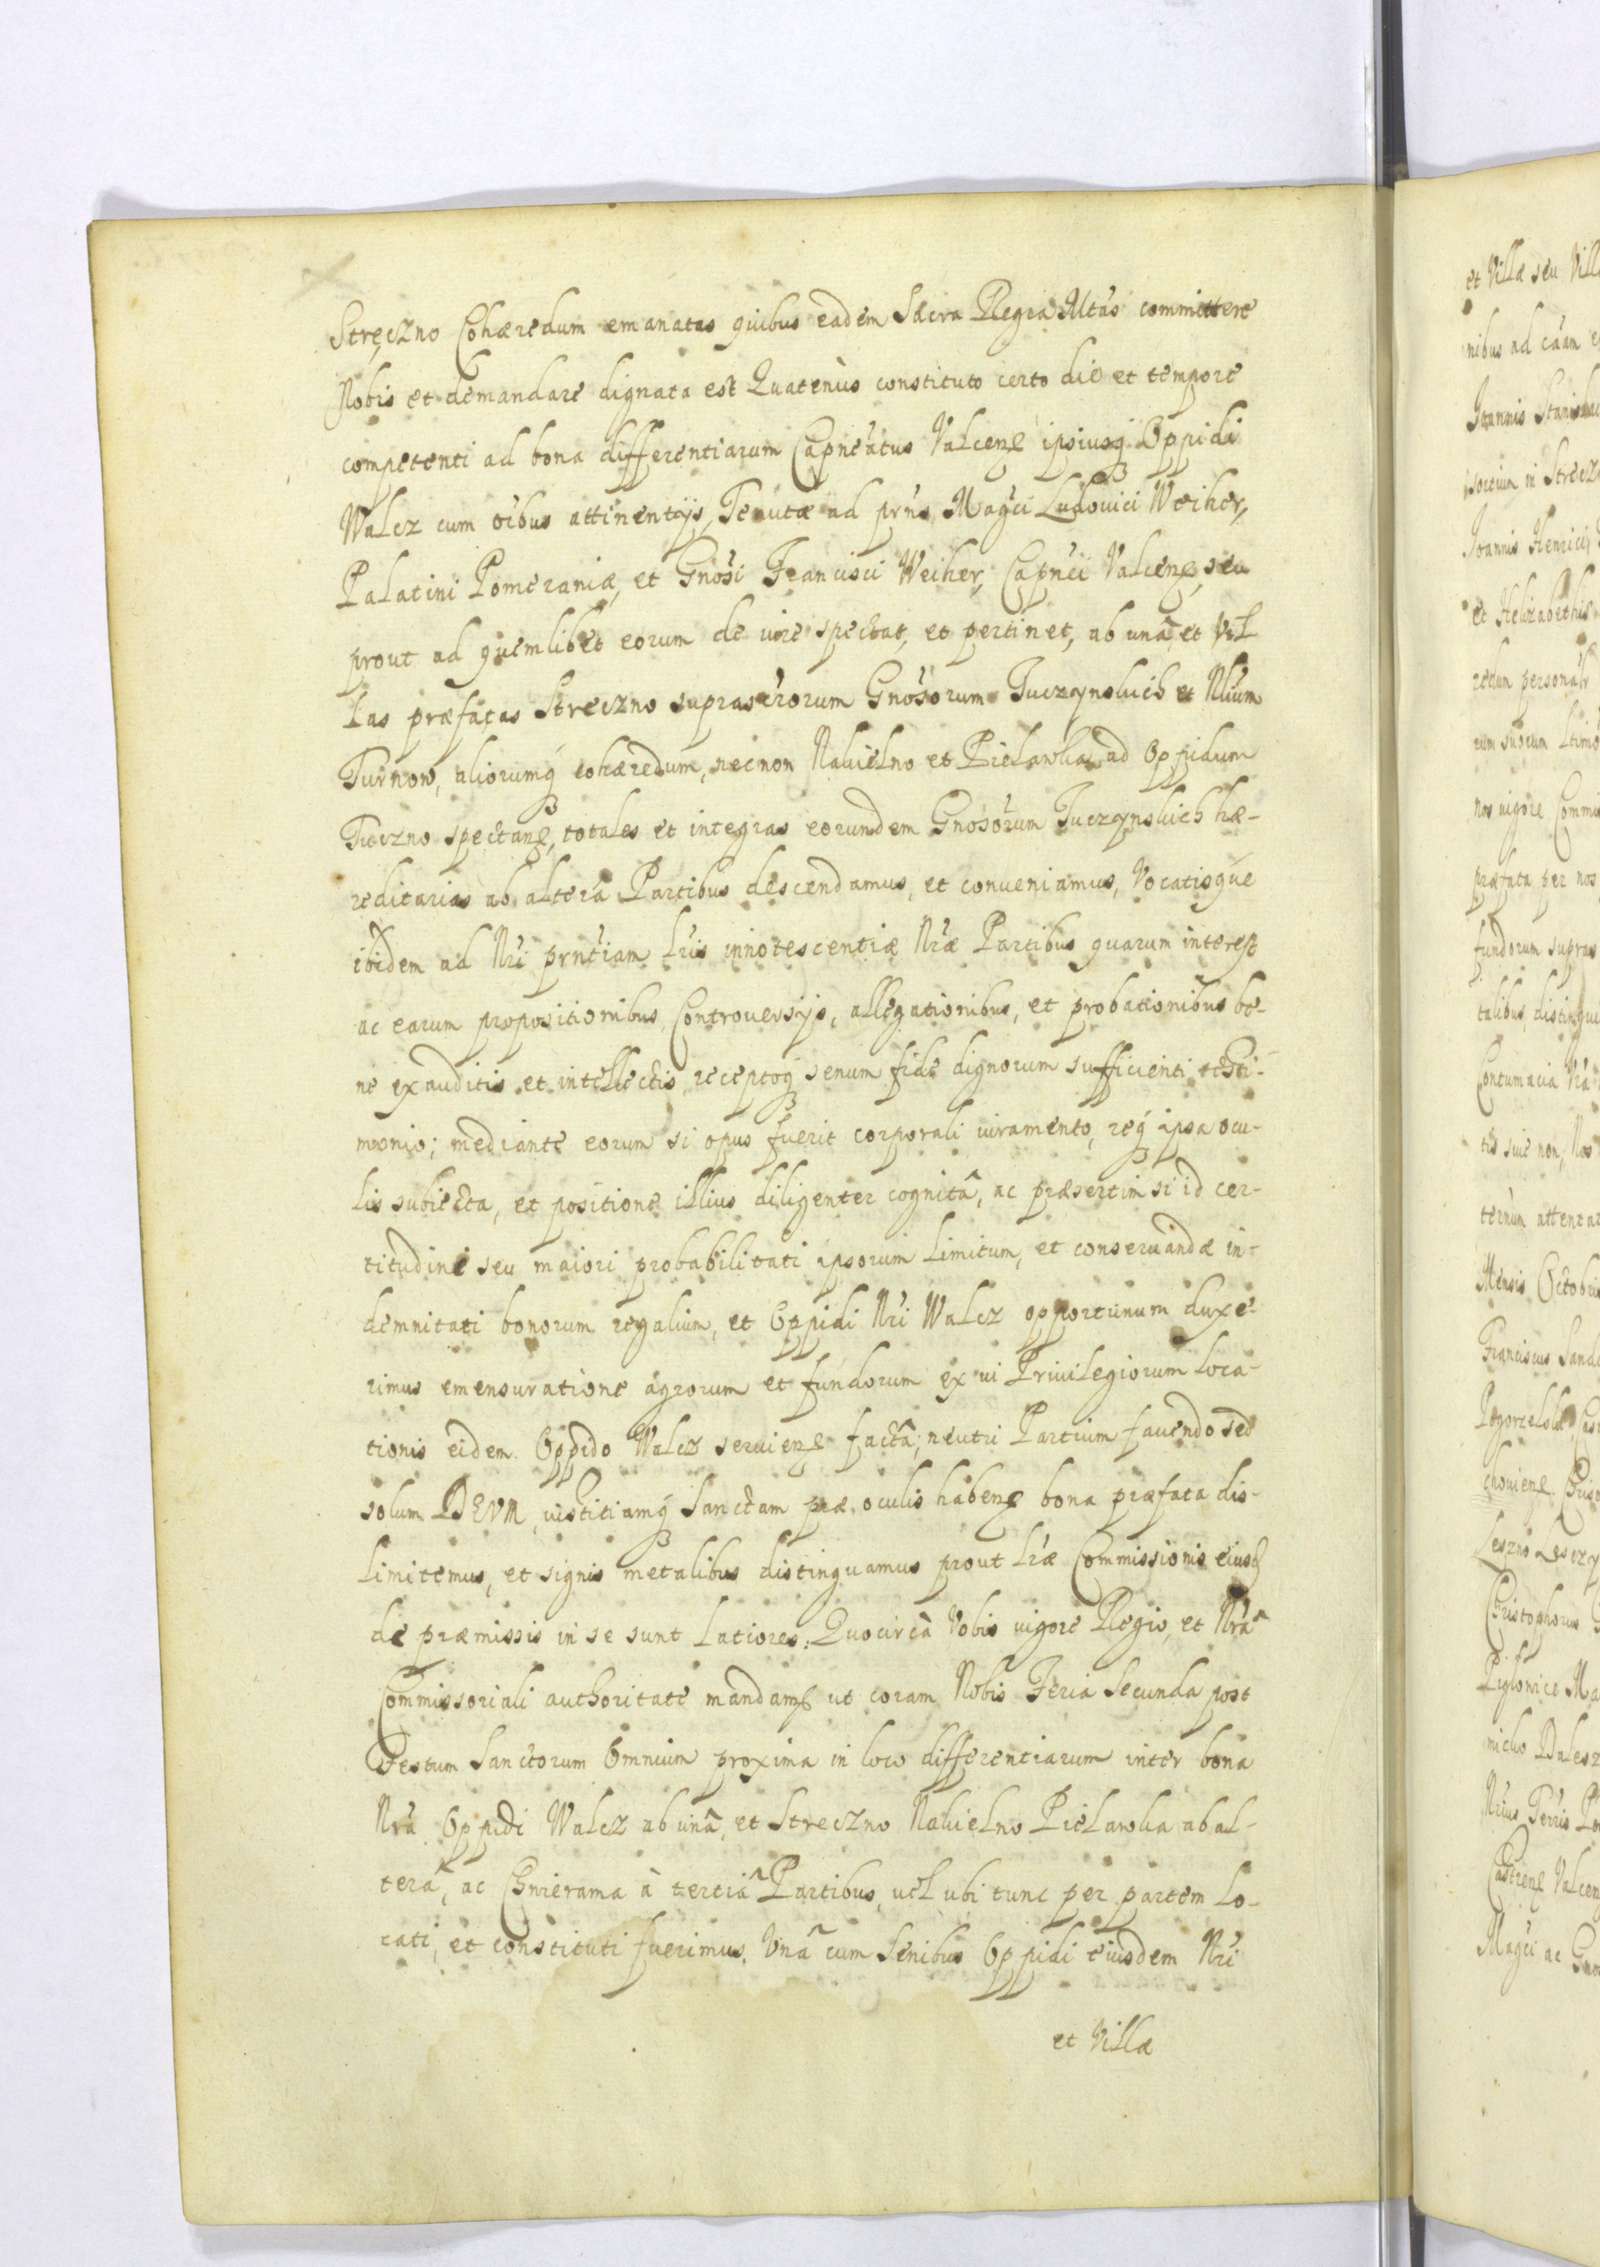 Stręczno Cohæredum emanatas quibus eadem Sacra Regia Mtas committere
Nobis et demandare dignata est Quatenùs constituto certo die et tempore
competenti ad bona differentiarum Capneatus Valcens ipsiusq Oppidi
Walcz cum oibus attinentijs, Tenutæ ad prns Magci Ludovici Weiher,
Palatini Pomeraniæ, et Gnosi Francisci Weiher, Capnei Valcens, seu
prout ad quemlibet eorum de iure spectat, et pertinet, ab unâ et Vil
las præfatas Streczno suprascrorum Gnosorum Tuczynskich et Nlium
Turnow, aliorumq cohæredum, necnon Nakielno et Pielawka ad Oppidum
Tuczno spectans, totales et integras eorundem Gnosorum Tuczynskich hæ-
reditarias ab altera Partibus descendamus, et conueniamus, Vocatisque
ibidem ad Nri prntiam Lris innotescentiæ Nræ Partibus quarum interest
ac earum propositionibus, Controuersijs, allegationibus, et probationibus be-
ne exauditis et intellectis, receptoq senum fide dignorum sufficienti testi-
monio; mediante eorum si opus fuerit corporali iuramento, req ipsa ocu-
lis subiecta, et positione illius diligenter cognitâ, ac præsertim si id cer-
titudini seu maiori probabilitati ipsorum limitum, et conseruandæ in-
demnitati bonorum regalium, et Oppidi Nri Walcz opportunum duxe-
rimus emensuratione agrorum et fundorum ex vi Priuilegiorum loca-
tionis eidem Oppido Walcz seruiens factâ, neutri Partium fauendo sed
solum DEVM, iustitiamq Sanctam præ oculis habens bona præfata dis-
limitemus, et signis metalibus distinguamus prout Lræ Commissionis eiusd
de præmissis in se sunt latiores. Quocircà Vobis vigore Regio, et Nrâ
Commissoriali authoritate mandams ut coram Nobis Feria Secunda post
Festum Sanctorum Omnium proxima in loco differentiarum inter bona
Nra Oppidi Walcz ab unâ, et Streczno Nakielno Pielawka ab al-
terâ, ac Chnierama à tertiâ Partibus, uel ubi tunc per partem lo-
cati, et constituti fuerimus. Vnâ cum Senibus Oppidi eiusdem Nri
et Villæ